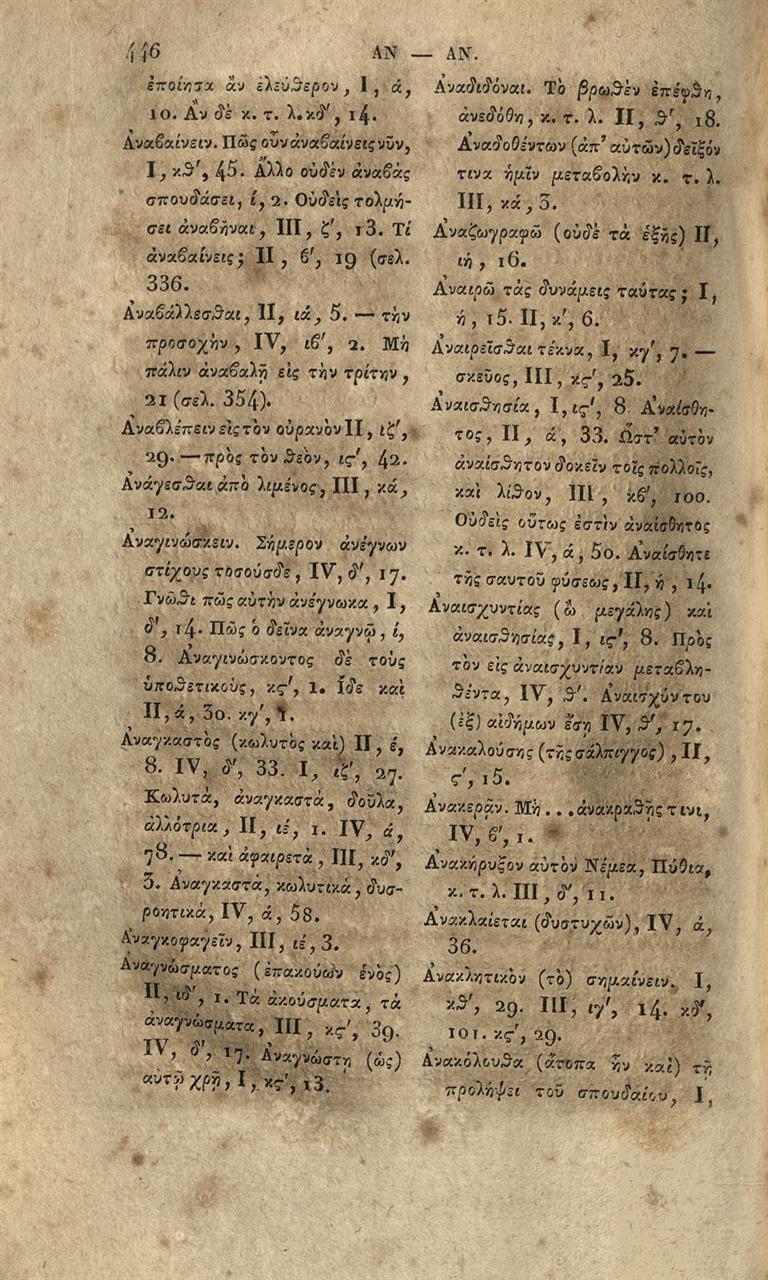 446
ΑΝ — ΑΝ.
ἐποίησα ἂν ἐλεύθερον, I, ά,
10. Ἂν δὲ κ. τ. λ. κδ', 14.
Ἀναβαίνειν. Πῶς οὖν ἀναβαίνεις νῦν,
I, κθ', 45. Ἄλλο οὐδὲν ἀναβὰς
σπουδάσει, ί, 2. Οὐδεὶς τολμή-
σει ἀναβῆναι, III, ζ', 13. Τί
ἀναβαίνεις; II, β', 19 (σελ.
336.
Ἀναβάλλεσθαι, II, ιά, 5. — τὴν
προσοχὴν, IV, ιβ', 2. Μὴ
πάλιν ἀναβαλῇ εἰς τὴν τρίτην,
21 (σελ. 354).
Ἀναβλέπειν εἰς τὸν οὐρανὸν II, ιζ',
29. — πρὸς τὸν θεὸν, ις', 42.
Ἀνάγεσθαι ἀπὸ λιμένος, III, κά,
12.
Ἀναγινώσκειν. Σήμερον ἀνέγνων
στίχους τοσούσδε, IV, δ', 17.
Γνῶθι πῶς αὐτὴν ἀνέγνωκα, I,
δ', 14. Πῶς ὁ δεῖνα ἀναγνῷ, ί,
8. Ἀναγινώσκοντος δὲ τοὺς
ὑποθετικοὺς, κς', 1. Ἴδε καὶ
II, ά, 30. κγ', 1.
Ἀναγκαστὸς (κωλυτὸς καὶ) II, έ,
8. IV, δ', 33. I, ιζ', 27.
Κωλυτὰ, ἀναγκαστὰ, δοῦλα,
ἀλλότρια, II, ιέ, 1. IV, ά,
78. — καὶ ἀφαιρετὰ, III, κδ',
3. Ἀναγκαστὰ, κωλυτικὰ, δυσ-
ροητικὰ, IV, ά, 58.
Ἀναγκοφαγεῖν, III, ιέ, 3.
Ἀναγνώσματος (ἐπακούων ἑνὸς)
II, ιδ', 1. Τὰ ἀκούσματα, τὰ
ἀναγνώσματα, III, κς', 39.
IV, δ', 17. Ἀναγνώστῃ (ὡς)
αὐτῷ χρῇ, I, κς', 13.
Ἀναδιδόναι. Τὸ βρωθὲν ἐπέφθη,
ἀνεδόθη, κ. τ. λ. II, θ', 18.
Ἀναδοθέντων (ἀπ' αὐτῶν) δεῖξόν
τινα ἡμῖν μεταβολὴν κ. τ. λ.
III, κά, 3.
Ἀναζωγραφῶ (οὐδὲ τὰ ἑξῆς) II,
ιή, 16.
Ἀναιρῶ τὰς δυνάμεις ταύτας; I,
ή, 15. II, κ', 6.
Ἀναιρεῖσθαι τέκνα, I, κγ', 7. —
σκεῦος, III, κς', 25.
Ἀναισθησία, I, ις', 8. Ἀναίσθη-
τος, II, ά, 33. Ὥστ' αὐτὸν
ἀναίσθητον δοκεῖν τοῖς πολλοῖς,
καὶ λίθον, III, κβ', 100.
Οὐδεὶς οὕτως ἐστὶν ἀναίσθητος
κ. τ. λ. IV, ά, 50. Ἀναίσθητε
τῆς σαυτοῦ φύσεως, II, ή, 14.
Ἀναισχυντίας (ὢ μεγάλης) καὶ
ἀναισθησίας, I, ις', 8. Πρὸς
τὸν εἰς ἀναισχυντίαν μεταβλη-
θέντα, IV, θ'. Ἀναισχύντου
(ἐξ) αἰδήμων ἔσῃ IV, θ', 17.
Ἀνακαλούσης (τῆς σάλπιγγος), II,
ς', 15.
Ἀνακερᾷν. Μὴ . . . ἀνακραθῇς τινι,
IV, β', 1.
Ἀνακήρυξον αὐτὸν Νέμεα, Πύθια,
κ. τ. λ. III, δ', 11.
Ἀνακλαίεται (δυστυχῶν), IV, ά,
36.
Ἀνακλητικὸν (τὸ) σημαίνειν. I,
κθ', 29. III, ιγ', 14. κδ',
101. κς', 29.
Ἀνακόλουθα (ἄτοπα ἦν καὶ) τῇ
προλήψει τοῦ σπουδαίου, I,